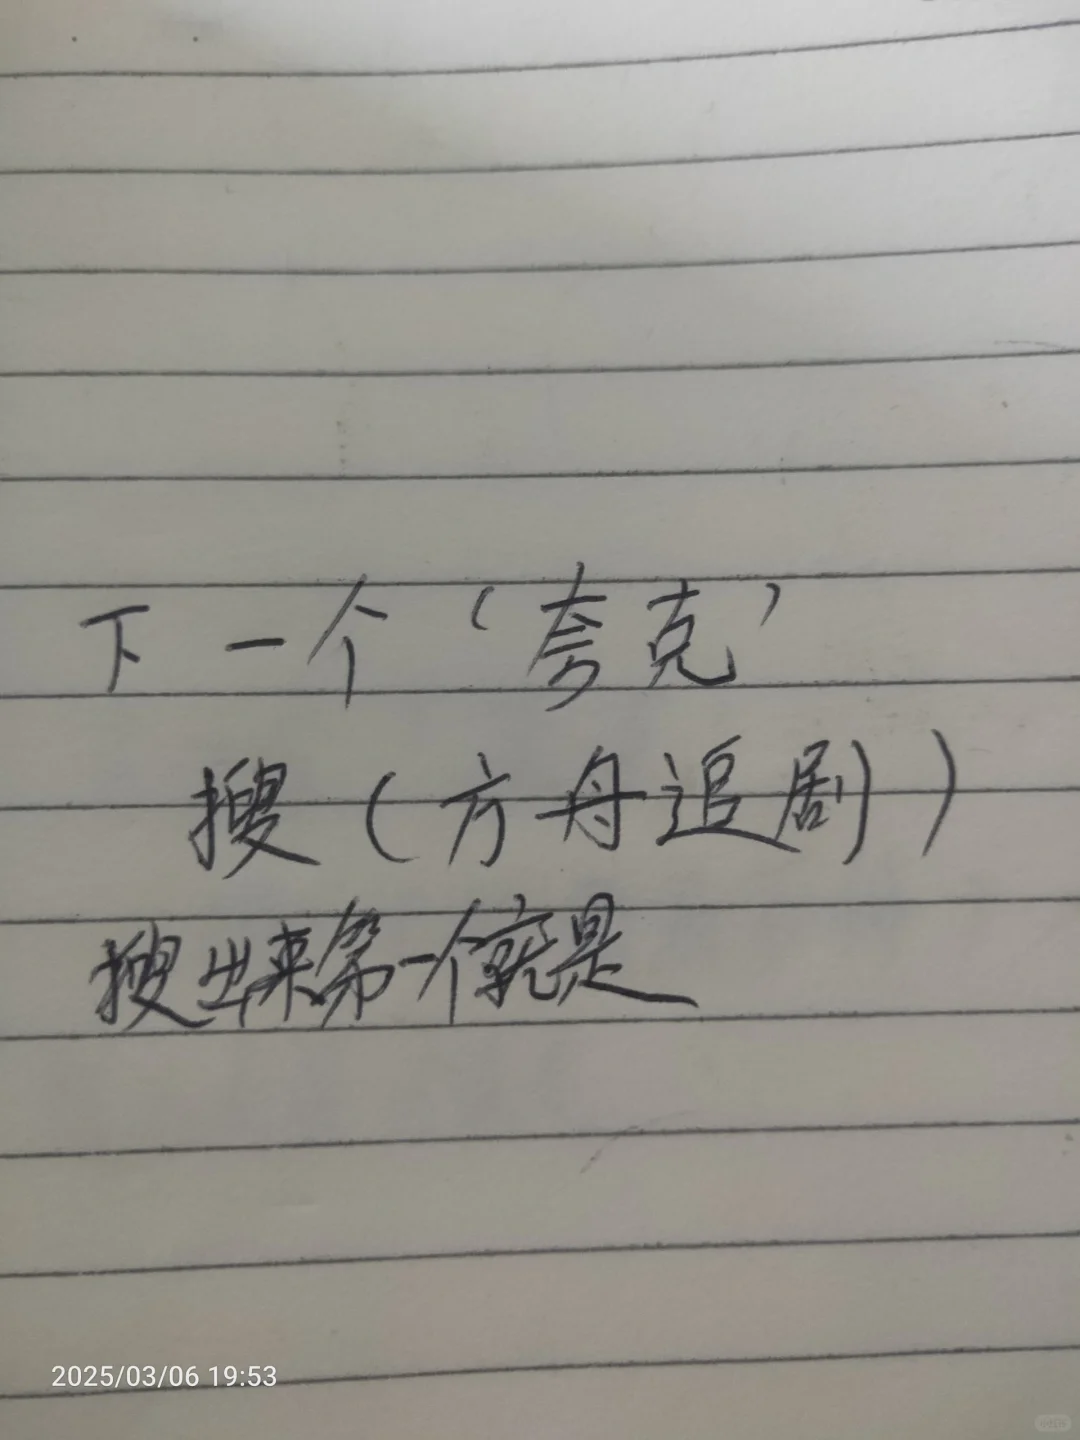 下一个‘夸克’
搜（方舟追剧）
搜出来第一个就是
2025/03/06 19:53